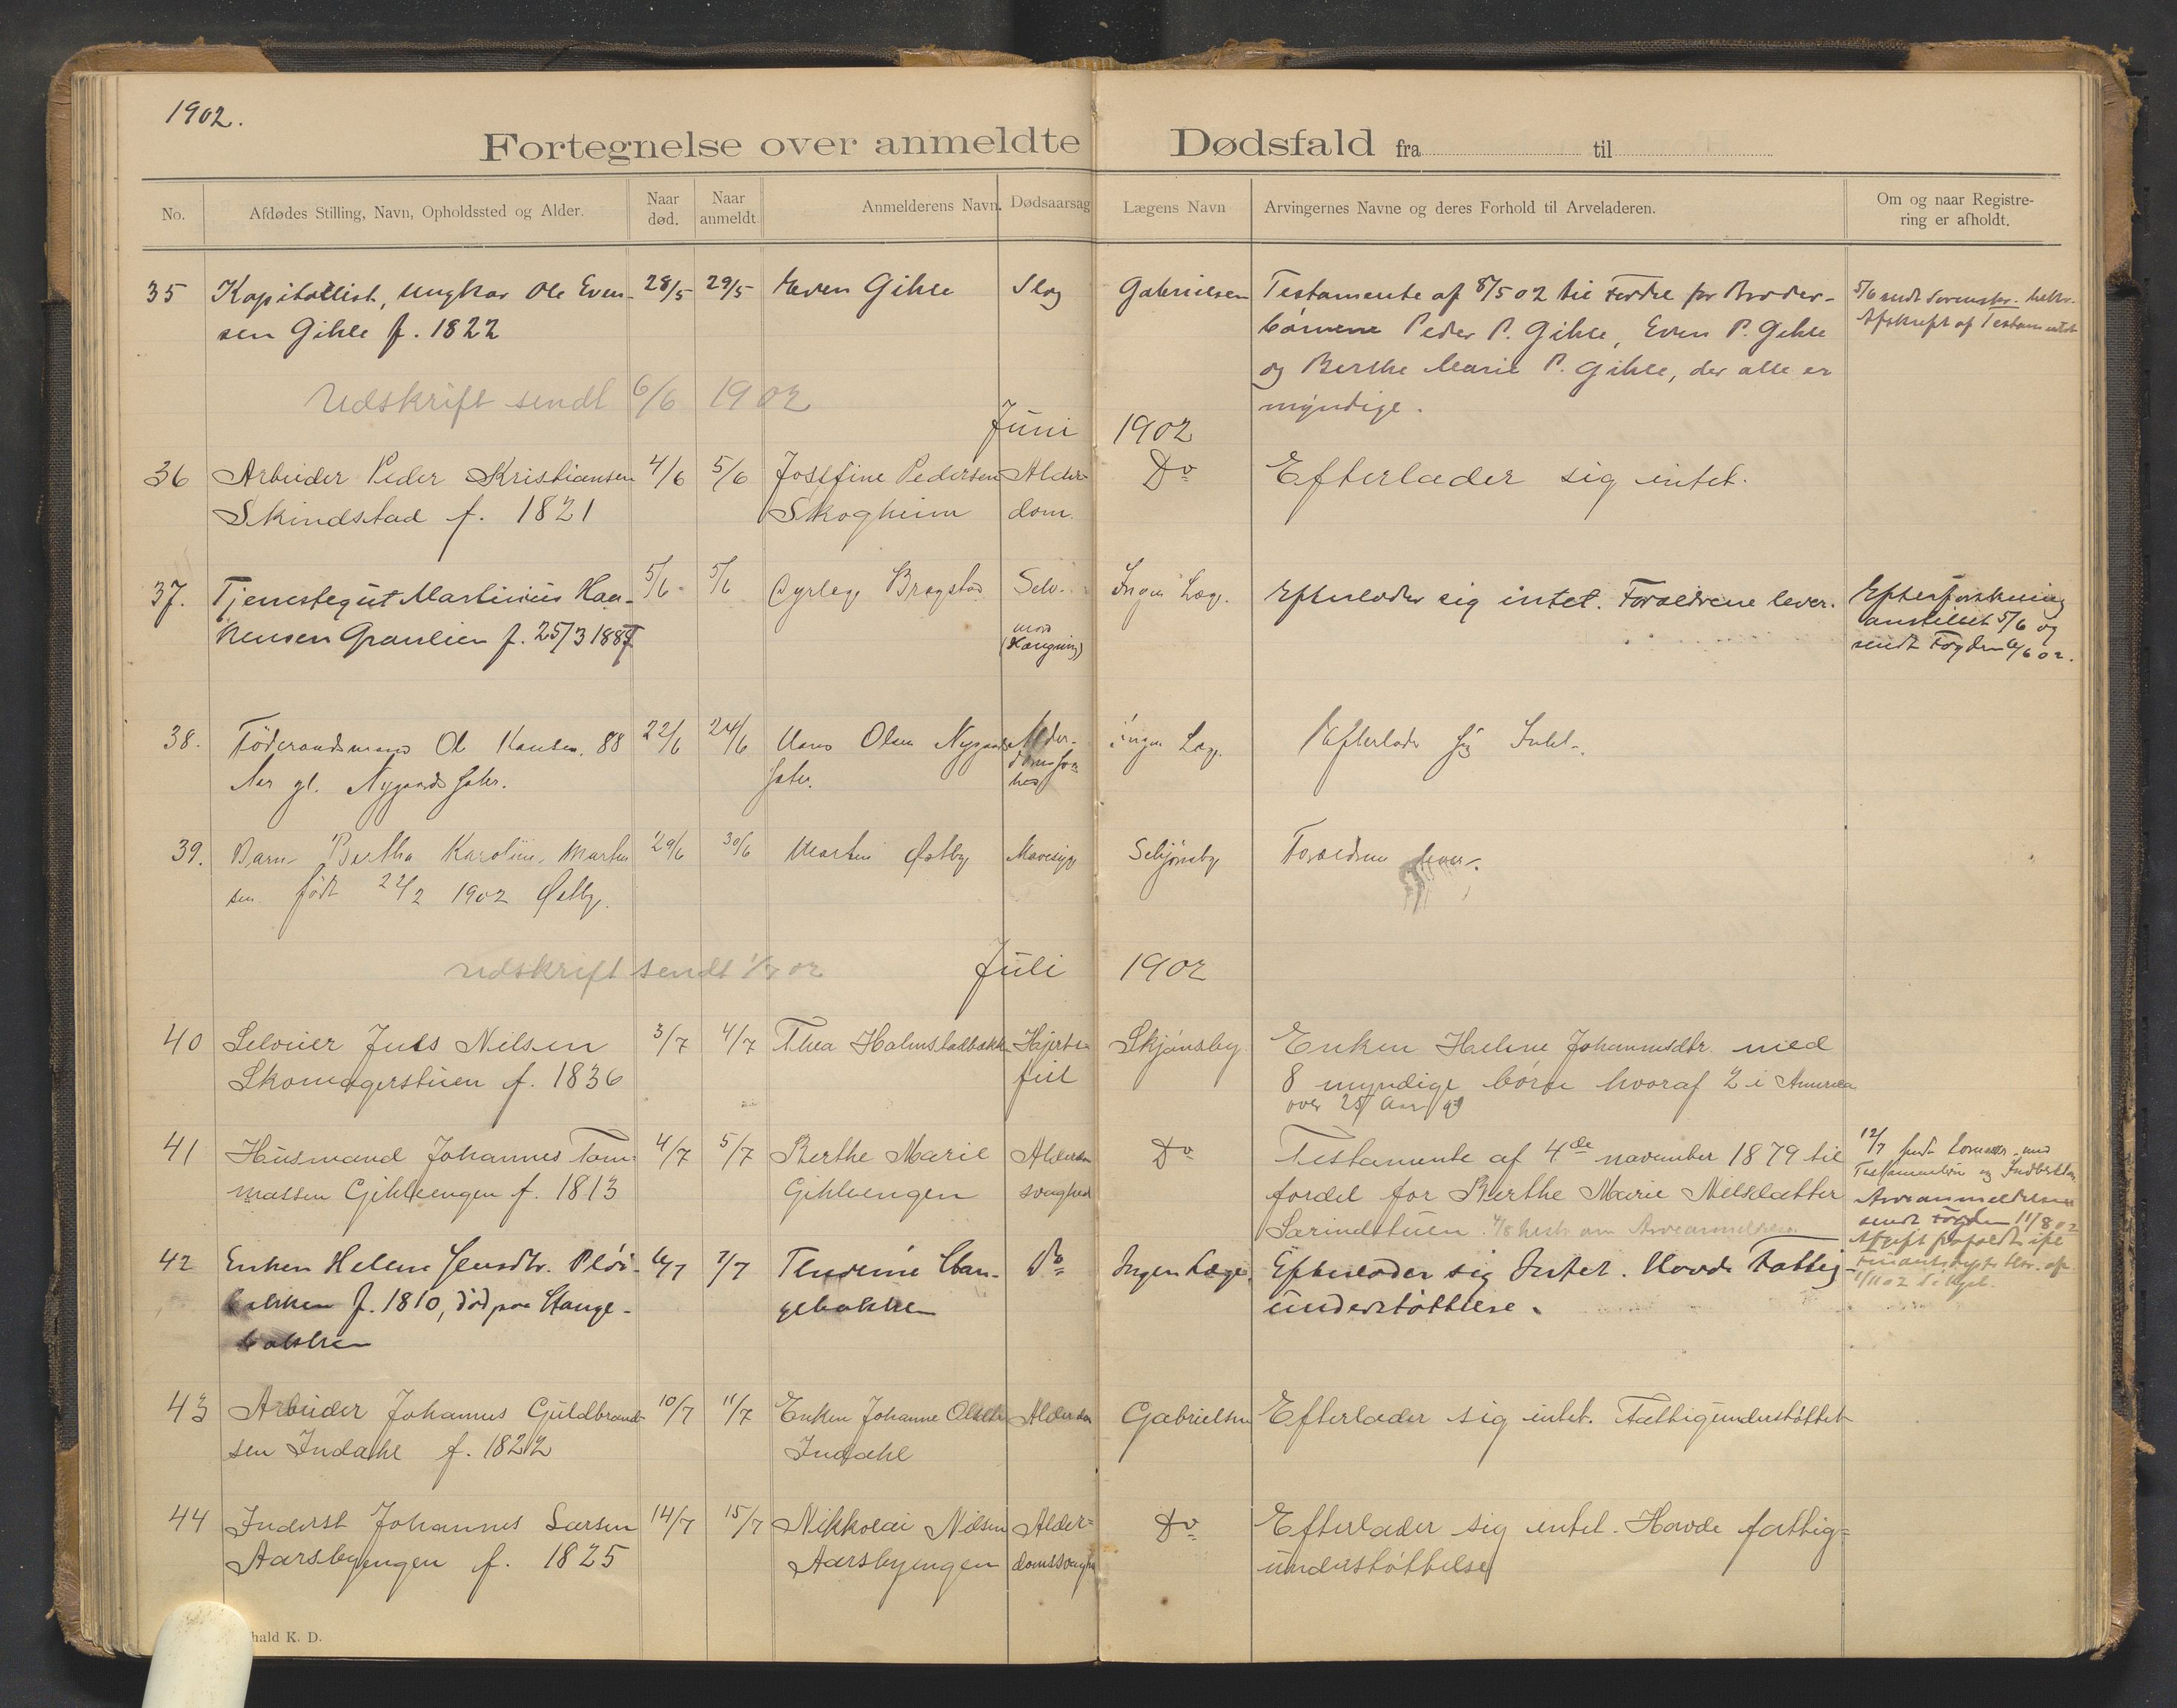 1902.
Fortegnelse over anmeldte Dødsfald fra til
No.
Afdødes Stilling, Navn, Opholdssted og Alder.
Naar død.
Naar anmeldt.
Anmelderens Navn.
Dødsaarsag
Lægens Navn
Arvingernes Navne og deres Forhold til Arveladeren.
Om og naar Registre-
ring er afholdt.
35 Kapitallist, Ungkar Ole Even- 28/5 29/5 Even Gihle Slag Gabrielsen Testamente af 8/5 02 til Fordel for Broder-
sen Gihle f. 1822 børnene Peder P. Gihle, Even P. Gihle
og Berthe Marie P. Gihle, der alle er
myndige.
5/6 sendt Sorenskr. bekr.
Afskrift af Testamentet
Udskrift sendt 6/6 1902
Juni 1902
36 Arbeider Peder Kristiansen 4/6 5/6 Josefine Pedersen Alder- Do Efterlader sig intet.
Skindstad f. 1821 Skogheim dom.
37. Tjenestegut Martinius Haa- 5/6 5/6 Bragstad Selv- Ingen Læge. Efterlader sig intet. Forældrene lever.
kensen Granlien f. 25/3 188 mord
(Hængning)
Efterforskning
anstillet 5/6 og
sendt Fogden 6/6 02.
38. Føderaadsmand Ole Hansen. 88 22/6 24/6 Hans Olsen Nygaard Alder- ingen Læge. Efterlader sig Intet.
Aar gl. Nygaard
39. Barn Bertha Karoline Martin 29/6 30/6 Martin Østby Mavesyge Schjønsby Forældrene lever.
sen født 22/2 1902 Østby.
udskrift sendt 1/7 02
Juli 1902
40 Selveier Juls Nilsen 3/7 4/7 Thea Holmstadbakk Hjerte Skjønsby Enken Helene Johannesdtr. med
Skomagerstuen f. 1836 feil 8 myndige børn hvoraf 2 i Amerika
over 25 Aar
41 Husmand Johannes Tom- 4/7 5/7 Berthe Marie Alderdom Do Testamente af 4de november 1879 til
massen Gihleengen f. 1813 Gihleengen svaghed fordel for Berthe Marie Nilsdatter
Sarindstuen. 4/8 om Arveanmeldelse
12/7 sendt Sorenskr. med
Testamentet og Indberetn.
Arveanmeldelsen
sendt Fogden 11/8 02
42 Enken Helene Jensdtr. Pløi- 6/7 7/7 Stan- Do Ingen Læge. Efterlader sig Intet. Havde Fattig-
bakken f. 1810, død paa Stange- gebakken understøttelse.
bakken
43 Arbeider Johannes Guldbrand- 10/7 11/7 Enken Johanne Olsdtr Alderdom Gabrielsen Efterlader sig intet. Fattigunderstøttet
sen Indahl f. 1822 Indahl
44 Inderst Johannes Larsen 14/7 15/7 Nikkolai Nilsen Alder= Do Efterlader sig intet. Havde fattig=
Aarsbyengen f. 1825 Aarsbyengen domssvaghed understøttelse
hald K. D.